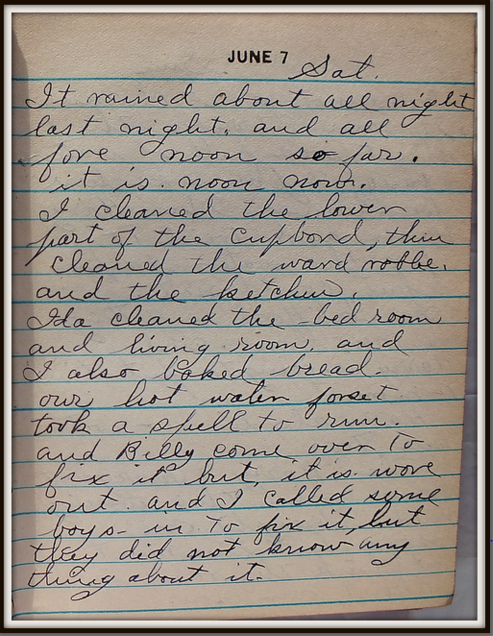 JUNE 7 Sat.
It rained about all night
last night. and all
fore noon so far.
it is. noon now.
I cleaned the lower
part of the cupbord, then
cleaned the ward robbe.
and the ketchen.
Ida cleaned the bed room
and living room, and
I also baked bread.
our hot water forset
took a spell to run.
and Billy come over to
fix it but, it is wore
out. and I called some
boys in to fix it, but
they did not know any
thing about it.